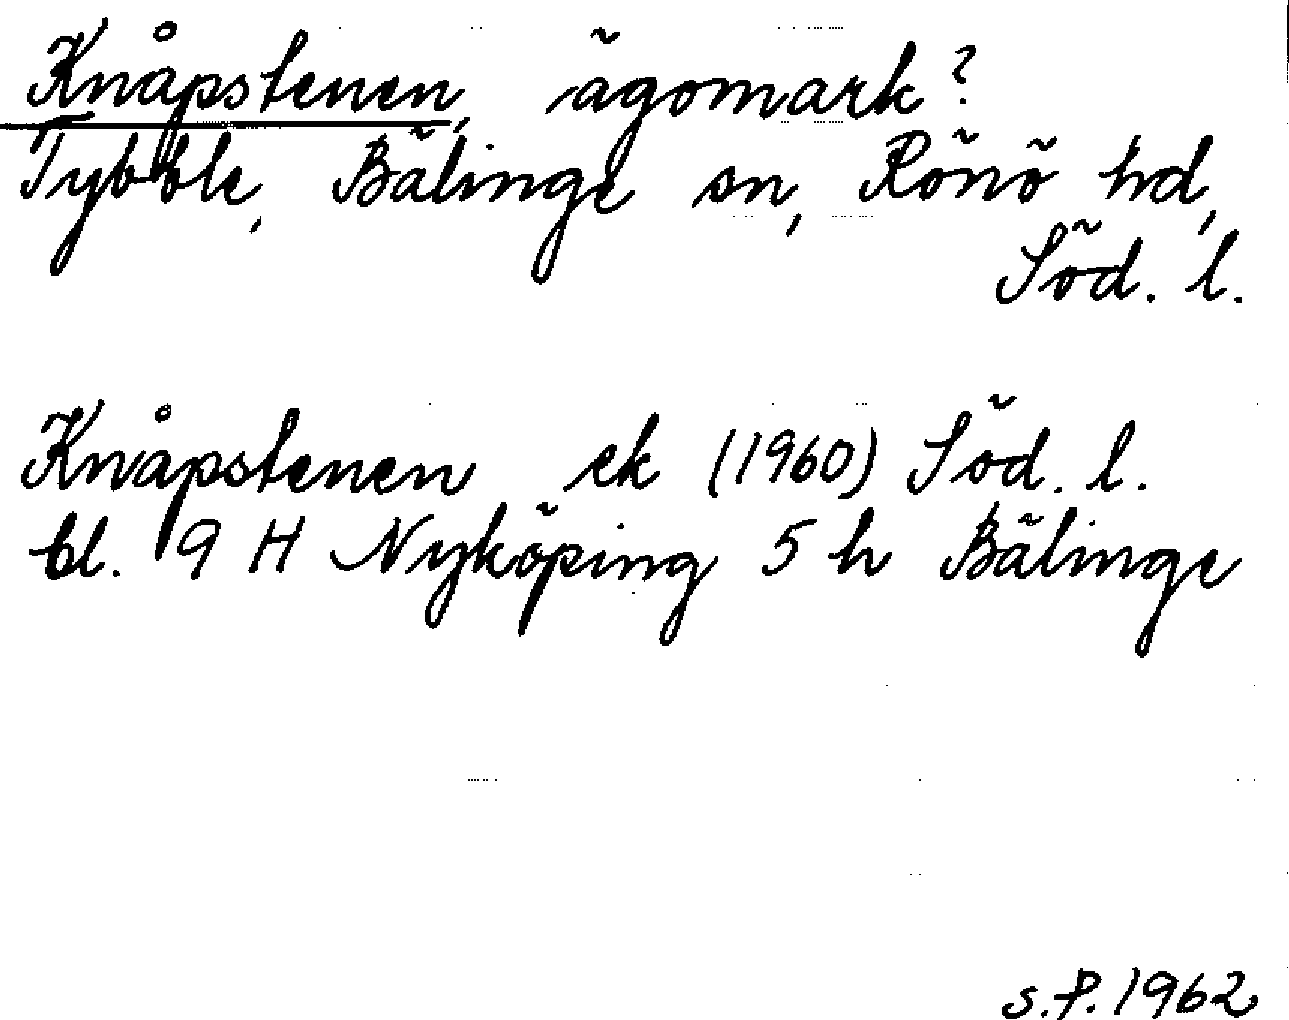 Knåpstenen, ägomark?
Tybble, Bälinge sn, Rönö hd,
Söd. l.
Knåpstenen ek (1960) Söd. l.
bl. 9 H Nyköping 5 h Bälinge
S.P. 1962